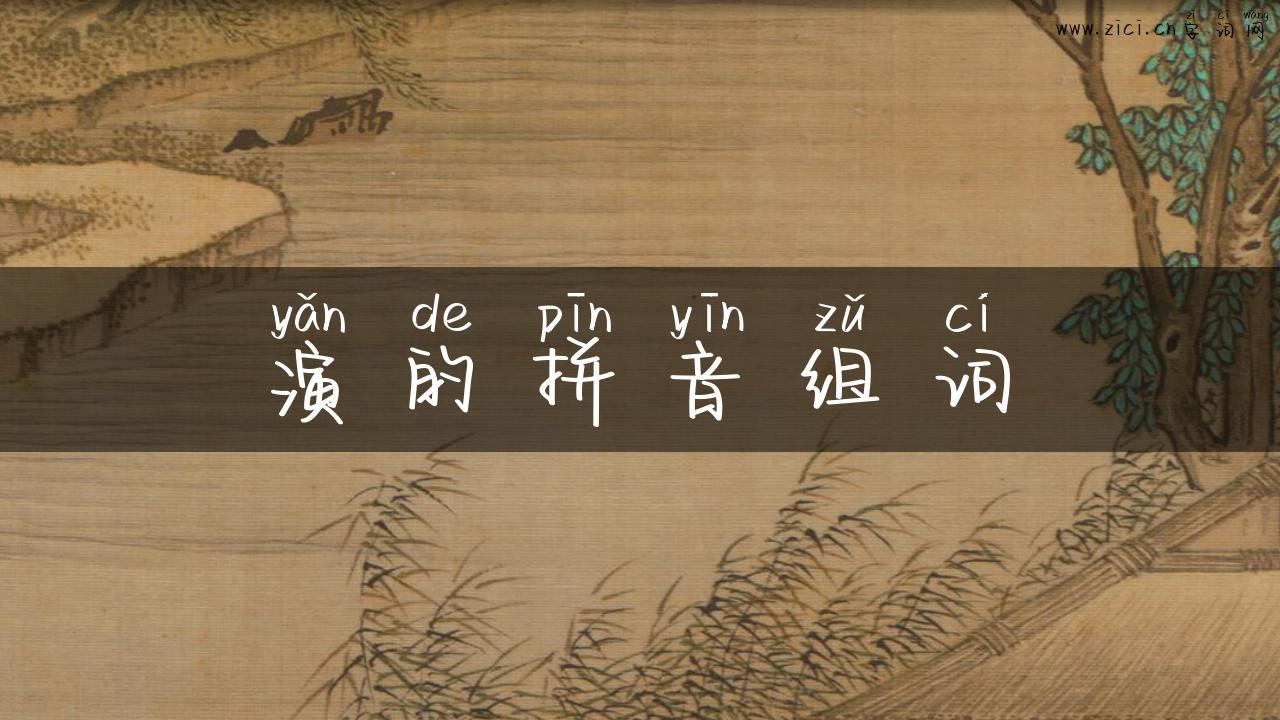 zì cí wǎng
www.zici.cn 字词网
yǎn de pīn yīn zǔ cí
演的拼音组词